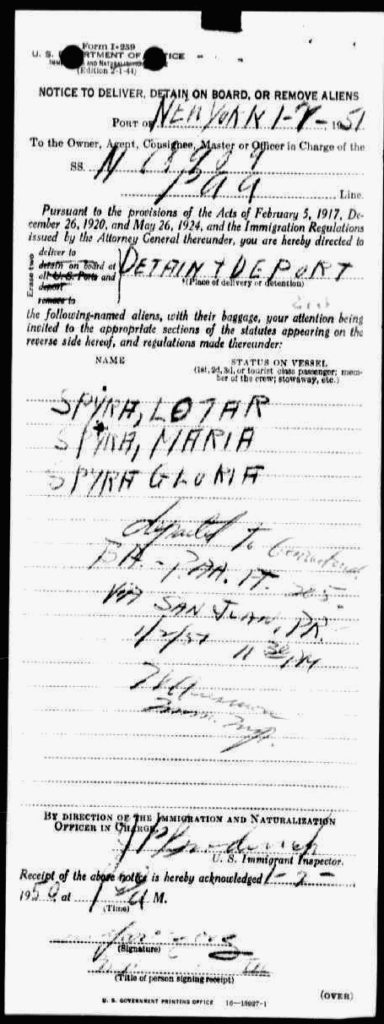 Form I-259
U. S. DEPARTMENT OF JUSTICE
IMMIGRATION AND NATURALIZATION
(Edition 2-1-44)
NOTICE TO DELIVER, DETAIN ON BOARD, OR REMOVE ALIENS
PORT OF NEW YORK 1-2-1951
To the Owner, Agent, Consignee, Master or Officer in Charge of the
SS. N
PAA Line.
Pursuant to the provisions of the Acts of February 5, 1917, De-
cember 26, 1920, and May 26, 1924, and the Immigration Regulations
issued by the Attorney General thereunder, you are hereby directed to
Erase two
deliver to
detain on board at
all U.S. Ports and
deport
remove to
DETAIN & DEPORT
(Place of delivery or detention)
the following-named aliens, with their baggage, your attention being
invited to the appropriate sections of the statutes appearing on the
reverse side hereof, and regulations made thereunder:
NAME STATUS ON VESSEL
(1st, 2d, 3d, or tourist class passenger; mem-
ber of the crew; stowaway, etc.)
SPYRA, LOTAR
SPYRA, MARIA
SPYRA GLORIA
deported to
BA. - PAA. FT. 205
VIA SAN JUAN, PR.
1/2/51 11 30 PM
BY DIRECTION OF THE IMMIGRATION AND NATURALIZATION
OFFICER IN CHARGE
U. S. Immigrant Inspector.
Receipt of the above notice is hereby acknowledged 1-2-
1950, at M.
(Time)
(Signature)
(Title of person signing receipt)
U. S. GOVERNMENT PRINTING OFFICE 16-15927-1
(OVER)